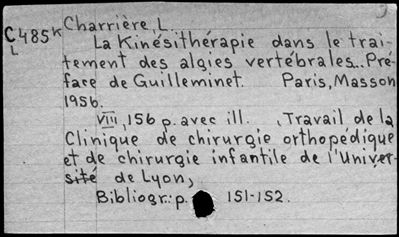 3
C485k Charrière, L
L La Kinésithérapie dans le trai-
tement des algies vertébrales... Pré-
face de Guilleminet. Paris, Masson
1956.
VIII, 156 p. avec ill. , Travail de la
Clinique de chirurgie orthopédique
et de chirurgie infantile de l'Univer-
sité de Lyon,
Bibliogr.: p. 151-152.